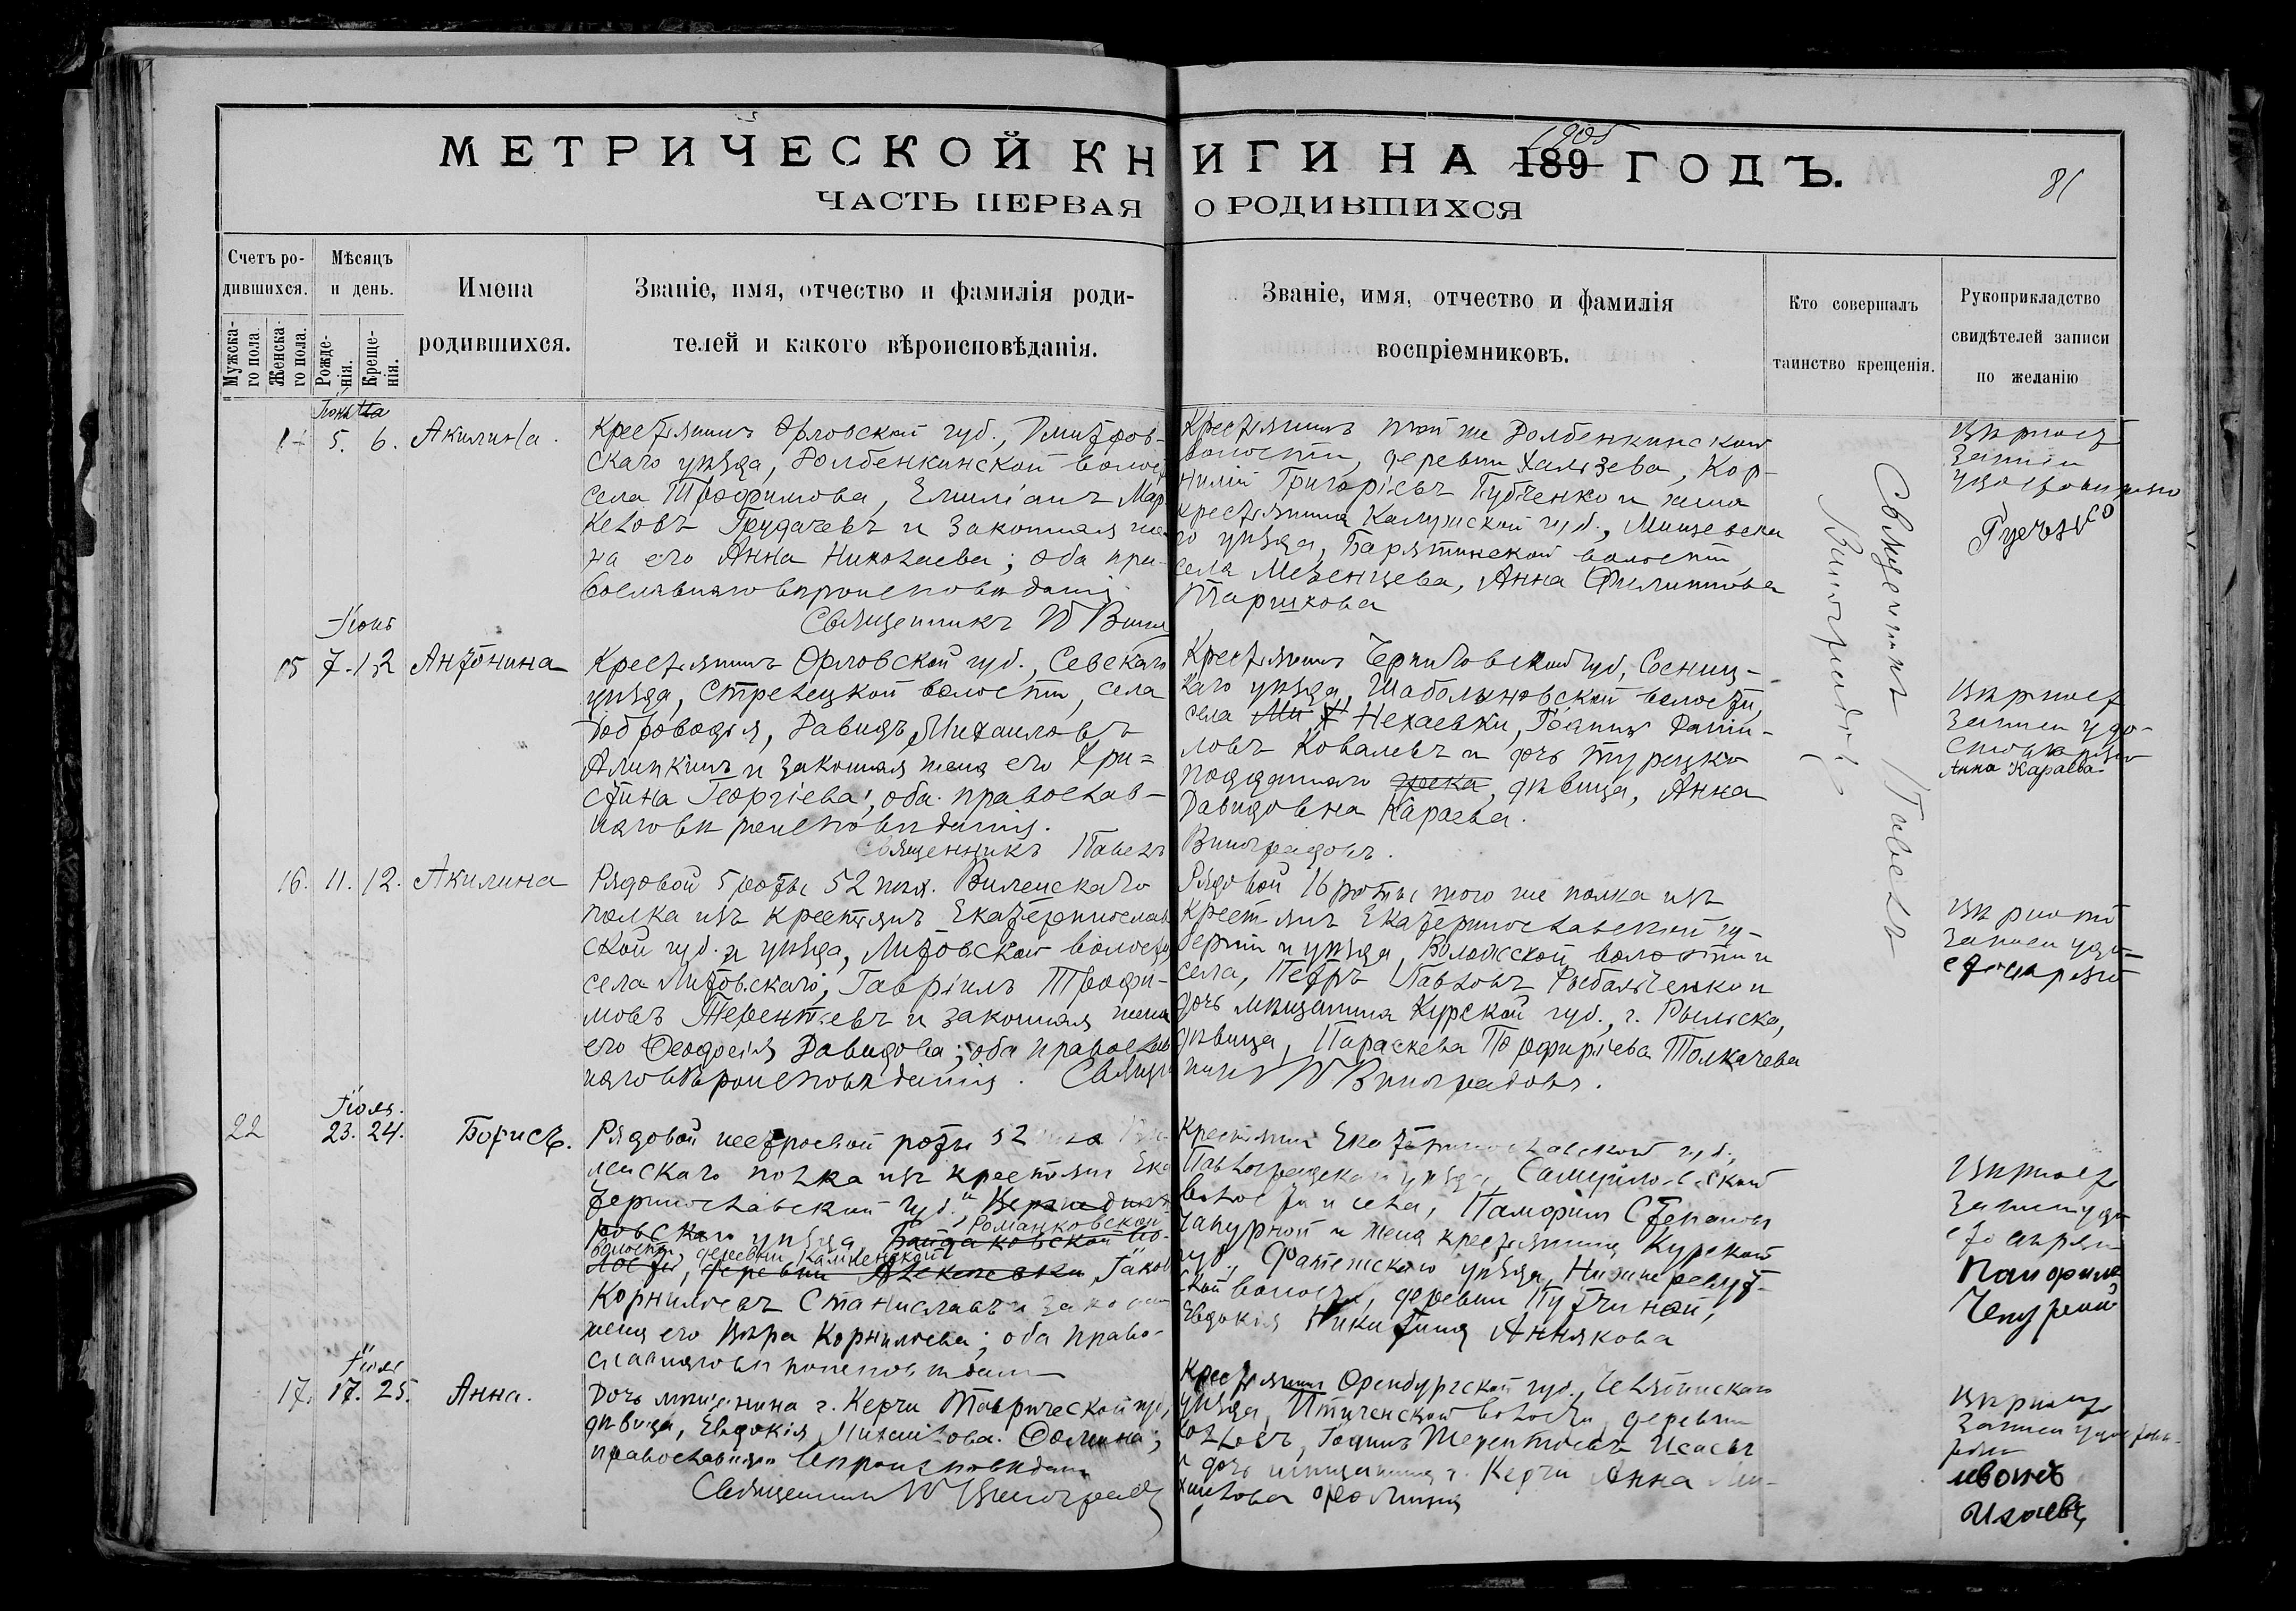 МЕТРИЧЕСКОЙ КНИГИ НА 189 1905 ГОДЪ.
81
ЧАСТЬ ПЕРВАЯ О РОДИВШИХСЯ
Счетъ родившихся.
Мужскаго пола.
Женскаго пола.
Мѣсяцъ и день.
Рожденія.
Крещенія.
Имена
родившихся.
Званіе, имя, отчество и фамилія роди-
телей и какого вѣроисповѣданія.
Званіе, имя, отчество и фамилія
воспріемниковъ.
Кто совершалъ
таинство крещенія.
Рукоприкладство
свидѣтелей записи
по желанію
14 5. 6. Акилина.
Крестьянинъ Орловской губ., Дмитров-
скаго уѣзда, Долбенкинской волост
села Трофимова, Емиліанъ Мар
келовъ Грудачевъ и законная же-
на его Анна Николаева; оба пра-
вославнаго вѣроисповѣданія.
Священникъ П Вин
Крестьянинъ той же Долбенкинской
волости, деревни Халзева, Кор-
нилій Григорьевъ Губченко и жена
крестьянина Калужской губ., Мищевска
го уѣзда, Барятинской волости,
села Мезенцева, Анна Филиппова
Таришкова
Вѣрность
записи
удостовѣряю
Іюнь
15 7. 12 Антонина
Крестьянинъ Орловской губ., Севскаго
уѣзда, Стрелецкой волости, села
Доброводья, Давидъ Михаиловъ
Алипкинъ и законная жена его Хри=
стина Георгіева; оба православ-
наго вѣроисповѣданія.
Священникъ Павелъ
Крестьянинъ Черниговской губ., Сосниц-
каго уѣзда, Шабалиновской волости,
села Нехаевки, Іоаннъ Даніи-
ловъ Ковалевъ и дочь турецко
подданнаго грека, дѣвица, Анна
Давидовна Караева.
Виноградовъ.
Вѣрность
записи удо-
стовѣряю
Анна Караева
16. 11. 12. Акилина
Рядовой 5 роты 52 пѣх. Виленскаго
полка изъ крестьянъ Екатеринослав
ской губ. и уѣзда, Литовской волости
села Литовскаго, Гавріилъ Трофи-
мовъ Терентьевъ и законная жена
его Феодосія Давидова; оба православ
наго вѣроисповѣданія. Священ
Рядовой 16 роты того же полка изъ
крестьянъ Екатеринославской гу-
берніи и уѣзда, Воложской волости и
села, Петръ Павловъ Рыбальченко и
дочь мѣщанина Курской губ., г. Рыльска,
дѣвица, Параскева Порфирьева Толкачева
никъ П Виноградовъ.
Вѣрность
записи удо-
стовѣряю
Священникъ Павелъ
Виноградовъ
Іюль.
22 23. 24. Борисъ.
Рядовой нестроевой роты 52 пѣх Ви-
ленскаго полка изъ крестьянъ Ека
теринославской губ. и Верхнеднѣп
ровскаго уѣзда, Романковской
волости, деревни Каменской, Іаков
Корнильевъ Станиславъ и законная
жена его Вѣра Корнильева; оба право-
славнаго вѣроисповѣданія
Крестьянинъ Екатеринославской губ.,
Павлоградскаго уѣзда, Самойловской
волости и села, Памфилъ Степановъ
Чапурной и жена крестьянина Курской
губ., Фатежскаго уѣзда, Нижнереут-
ской волости, деревни Путчиной,
Евдокія Никитина Аннякова
Вѣрность
записи удо
стовѣряю
Памфилъ
Чепурной
Іюль
17. 17. 25. Анна.
Дочь мѣщанина г. Керчи Таврической губ,
дѣвица, Евдокія Михаилова Фомина;
православнаго вѣроисповѣданія
Священникъ П Виноградовъ
Крестьянинъ Оренбургской губ., Челябинскаго
уѣзда, Птиченской волости, деревни
Козловъ, Іоаннъ Терентьевъ Исаевъ
и дочь мѣщанина г. Керчи Анна Ми-
хаилова Фомина
Вѣрность
записи удостовѣ-
ряю
Ивонъ
Исаевъ